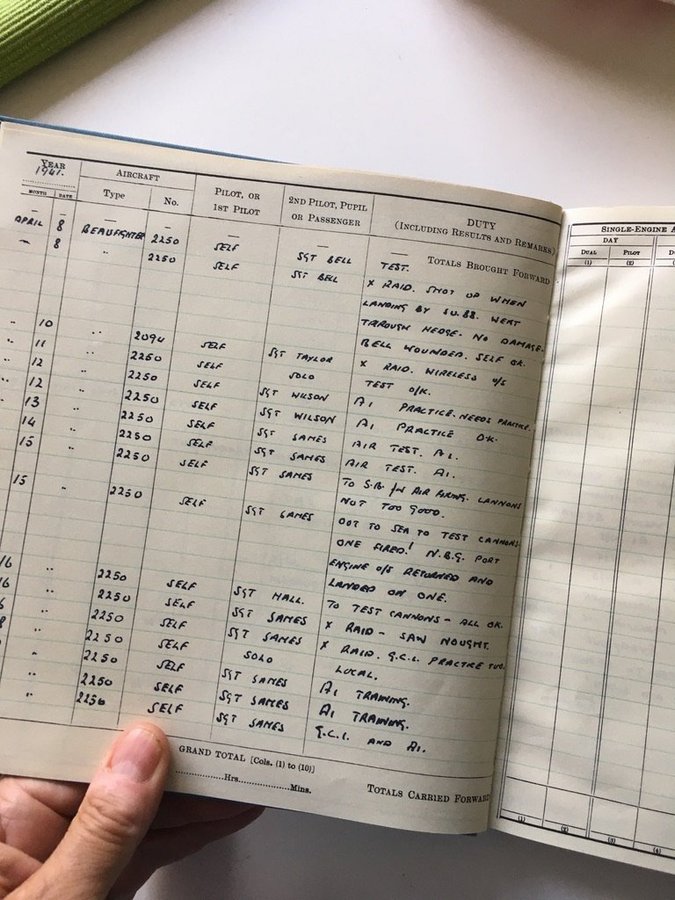 YEAR
1941.
AIRCRAFT
PILOT, OR
1ST PILOT
2ND PILOT, PUPIL
OR PASSENGER
DUTY
(INCLUDING RESULTS AND REMARKS)
MONTH DATE Type No.
— — — — — — TOTALS BROUGHT FORWARD
APRIL 8 BEAUFIGHTER 2250 SELF SGT BELL TEST.
" 8 " 2250 SELF SGT BELL X RAID. SHOT UP WHEN
LANDING BY JU.88. WENT
THROUGH HEDGE. NO DAMAGE.
BELL WOUNDED. SELF OK.
" 10 " 2094 SELF SGT TAYLOR X RAID. WIRELESS U/S
" 11 " 2250 SELF SOLO TEST O/K.
" 12 " 2250 SELF SGT WILSON A1 PRACTICE. NEEDS PRACTICE.
" 12 " 2250 SELF SGT WILSON A1 PRACTICE OK.
" 13 " 2250 SELF SGT JAMES AIR TEST. A1.
" 14 " 2250 SELF SGT JAMES AIR TEST. A1.
15 " 2250 SELF SGT JAMES TO S.B. for AIR FIRING. CANNONS
NOT TOO GOOD.
15 " 2250 SELF SGT JAMES OUT TO SEA TO TEST CANNONS
ONE FIRED! N.B.G. PORT
ENGINE U/S RETURNED AND
LANDED ON ONE.
16 " 2250 SELF SGT HALL. TO TEST CANNONS - ALL OK.
16 " 2250 SELF SGT JAMES X RAID - SAW NOUGHT.
" 2250 SELF SGT JAMES X RAID. G.C.I. PRACTICE TOO.
" 2250 SELF SOLO LOCAL.
" 2250 SELF SGT JAMES A1 TRAINING.
" 2250 SELF SGT JAMES A1 TRAINING.
" 2250 SELF SGT JAMES G.C.I. AND A1.
GRAND TOTAL [Cols. (1) to (10)]
Hrs. Mins.
TOTALS CARRIED FORWARD
SINGLE-ENGINE A
DAY
DUAL PILOT
(1) (2)
(1) (2) (3) (4)